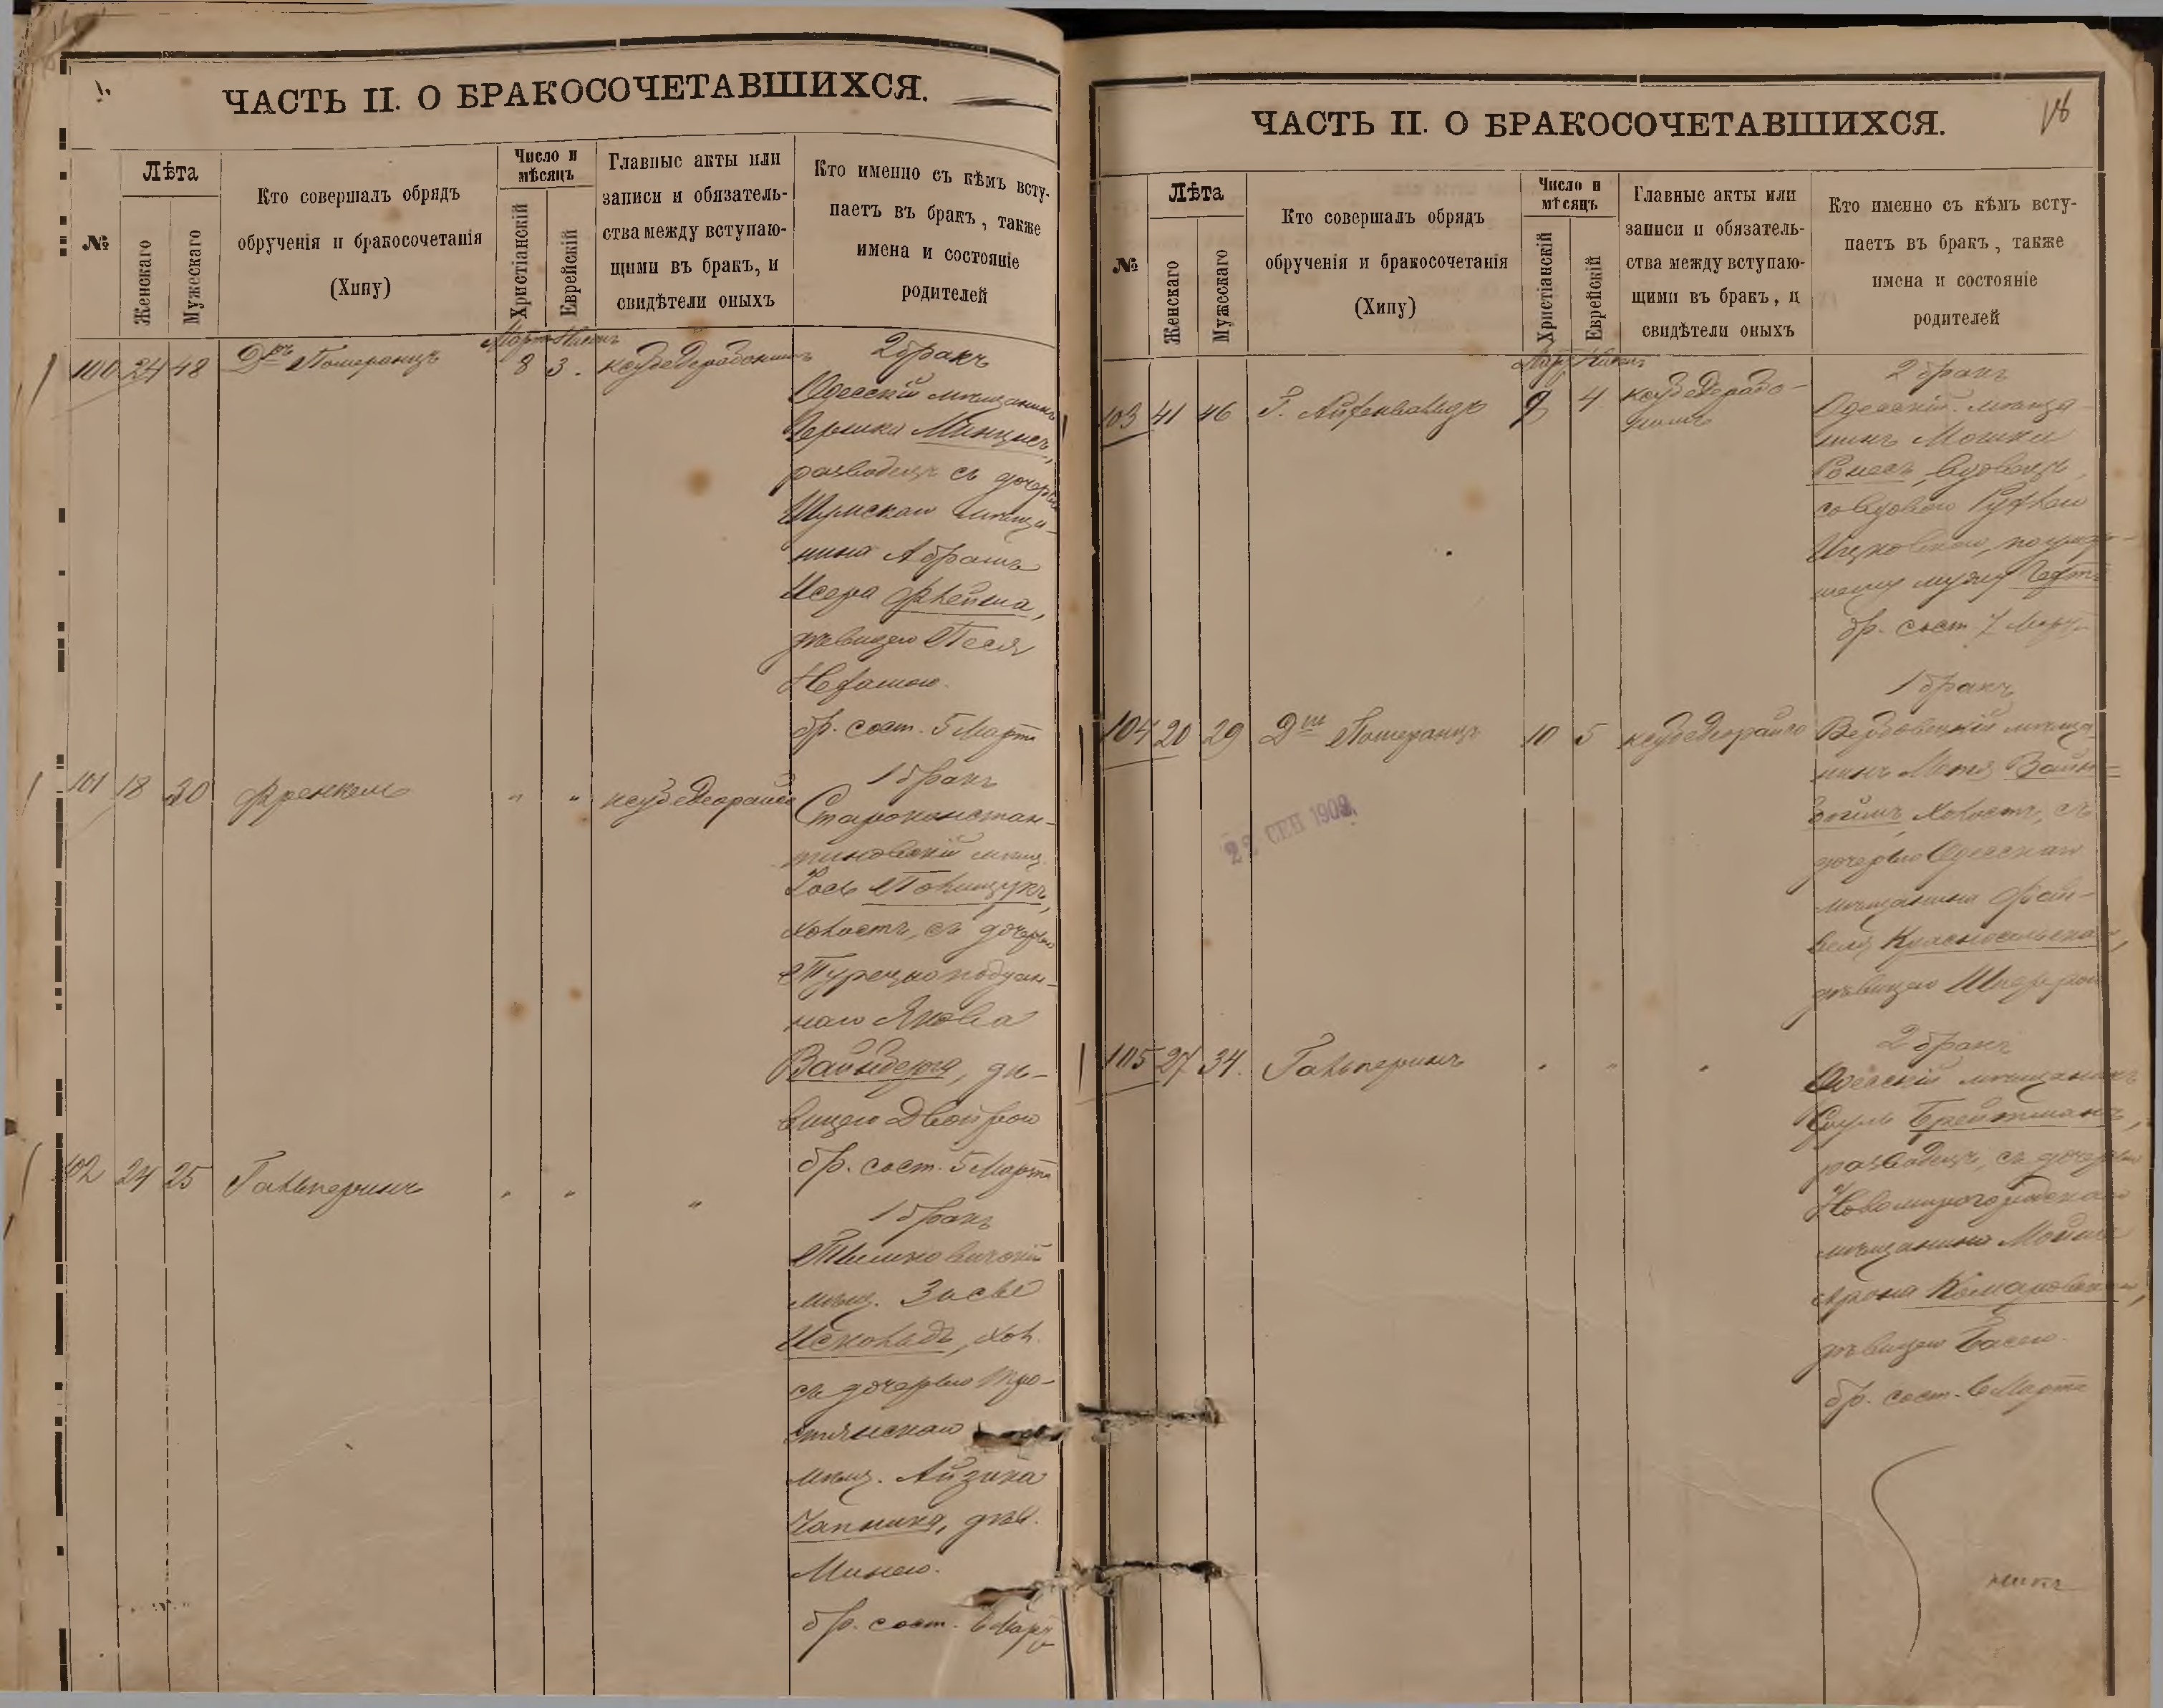 ЧАСТЬ II. О БРАКОСОЧЕТАВШИХСЯ.
№
Лѣта
Женскаго
Мужескаго
Кто совершалъ обрядъ
обрученія и бракосочетанія
(Хипу)
Число и
мѣсяцъ
Христіанскій
Еврейскій
Главные акты или
записи и обязатель-
ства между вступаю-
щими въ бракъ, и
свидѣтели оныхъ
Кто именно съ кѣмъ всту-
паетъ въ бракъ, также
имена и состояніе
родителей
100 24 48 Д-ръ Померанцъ
8 3.
2 бракъ
Одесскій мѣщанинъ
Минцисъ,
разводецъ съ дочерью
Шумскаго мѣща-
нина Абрамъ
Исера Флейша,
дѣвицею Песя
Нехамою.
бр. сост. 5 Марта
101 18 30 Френкель " "
1 бракъ
Староконстан-
тиновскій мѣщ.
Іось Полищукъ,
холостъ, съ дочерью
Турецко поддан-
наго Якова
Вайнберга, дѣ-
вицею Двойрою
бр. сост. 5 Марта
102 24 25 Гальперинъ " " "
1 бракъ
мѣщ. Зисье
Исколадъ, хол.
съ дочерью Тро-
стянскаго
мѣщ. Айзика
Чапника, дѣв.
Минею.
бр. сост. 6 Март
ЧАСТЬ II. О БРАКОСОЧЕТАВШИХСЯ.
№
Лѣта
Женскаго
Мужескаго
Кто совершалъ обрядъ
обрученія и бракосочетанія
(Хипу)
Число и
мѣсяцъ
Христіанскій
Еврейскій
Главные акты или
записи и обязатель-
ства между вступаю-
щими въ бракъ, и
свидѣтели оныхъ
Кто именно съ кѣмъ всту-
паетъ въ бракъ, также
имена и состояніе
родителей
103 41 46 Г. Айхенвальдъ 9 4
2 бракъ
Одесскій мѣща-
нинъ Мошка
вдовецъ,
со вдовою Рухлею
Ицковною, по
мужу
бр. сост. 7 Марта
104 20 29 Д-ръ Померанцъ 10 5
1 бракъ
Вербовецкій мѣща
нинъ Вайн=
холостъ, съ
дочерью Одесскаго
мѣщанина Фай-
веля Красносельскаго,
дѣвицею
22 СЕН 1902
105 27 34. Гальперинъ " " "
2 бракъ
Одесскій мѣщанинъ
Сруль Брейтманъ,
разводецъ, съ дочерью
Новомиргородскаго
мѣщанина
Арона Комаровскаго,
дѣвицею Басею.
бр. сост. 6 Марта